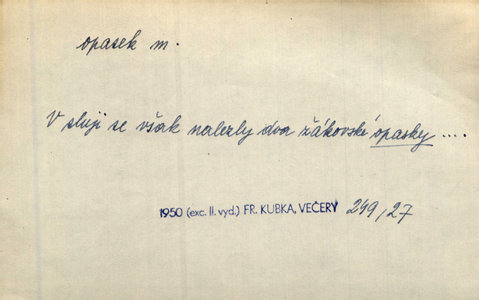 opasek m.
V sluji se však nalezly dva žákovské opasky ....
1950 (exc. II. vyd.) FR. KUBKA, VEČERY 249/27